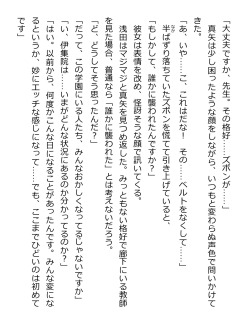 「大丈夫ですか、先生。その格好……ズボンが……」
　真矢は少し困ったような顔をしながら、いつもと変わらぬ声色で問いかけて
きた。
「あ、いや……こ、これはだな！　その……ベルトをなくして……」
　半ばずり落ちていたズボンを慌てて引き上げていると、
「もしかして、誰かに襲われたんですか？」
　彼女は表情を改め、怪訝そうな顔で訊いてくる。
　浅田はマジマジと真矢を見つめ返した。みっともない格好で廊下にいる教師
を見た場合、普通なら「誰かに襲われた」とは考えないだろう。
「ど、どうしてそう思ったんだ？」
「だって、この学園にいる人たち、みんなおかしくなってるじゃないですか」
「い、伊集院は……いまがどんな状況にあるのか分かってるのか？」
「はい。以前から、何度かこんな日になることがあったんです。みんな変にな
るというか、妙にエッチな感じになって……でも、ここまでひどいのは初めて
です」